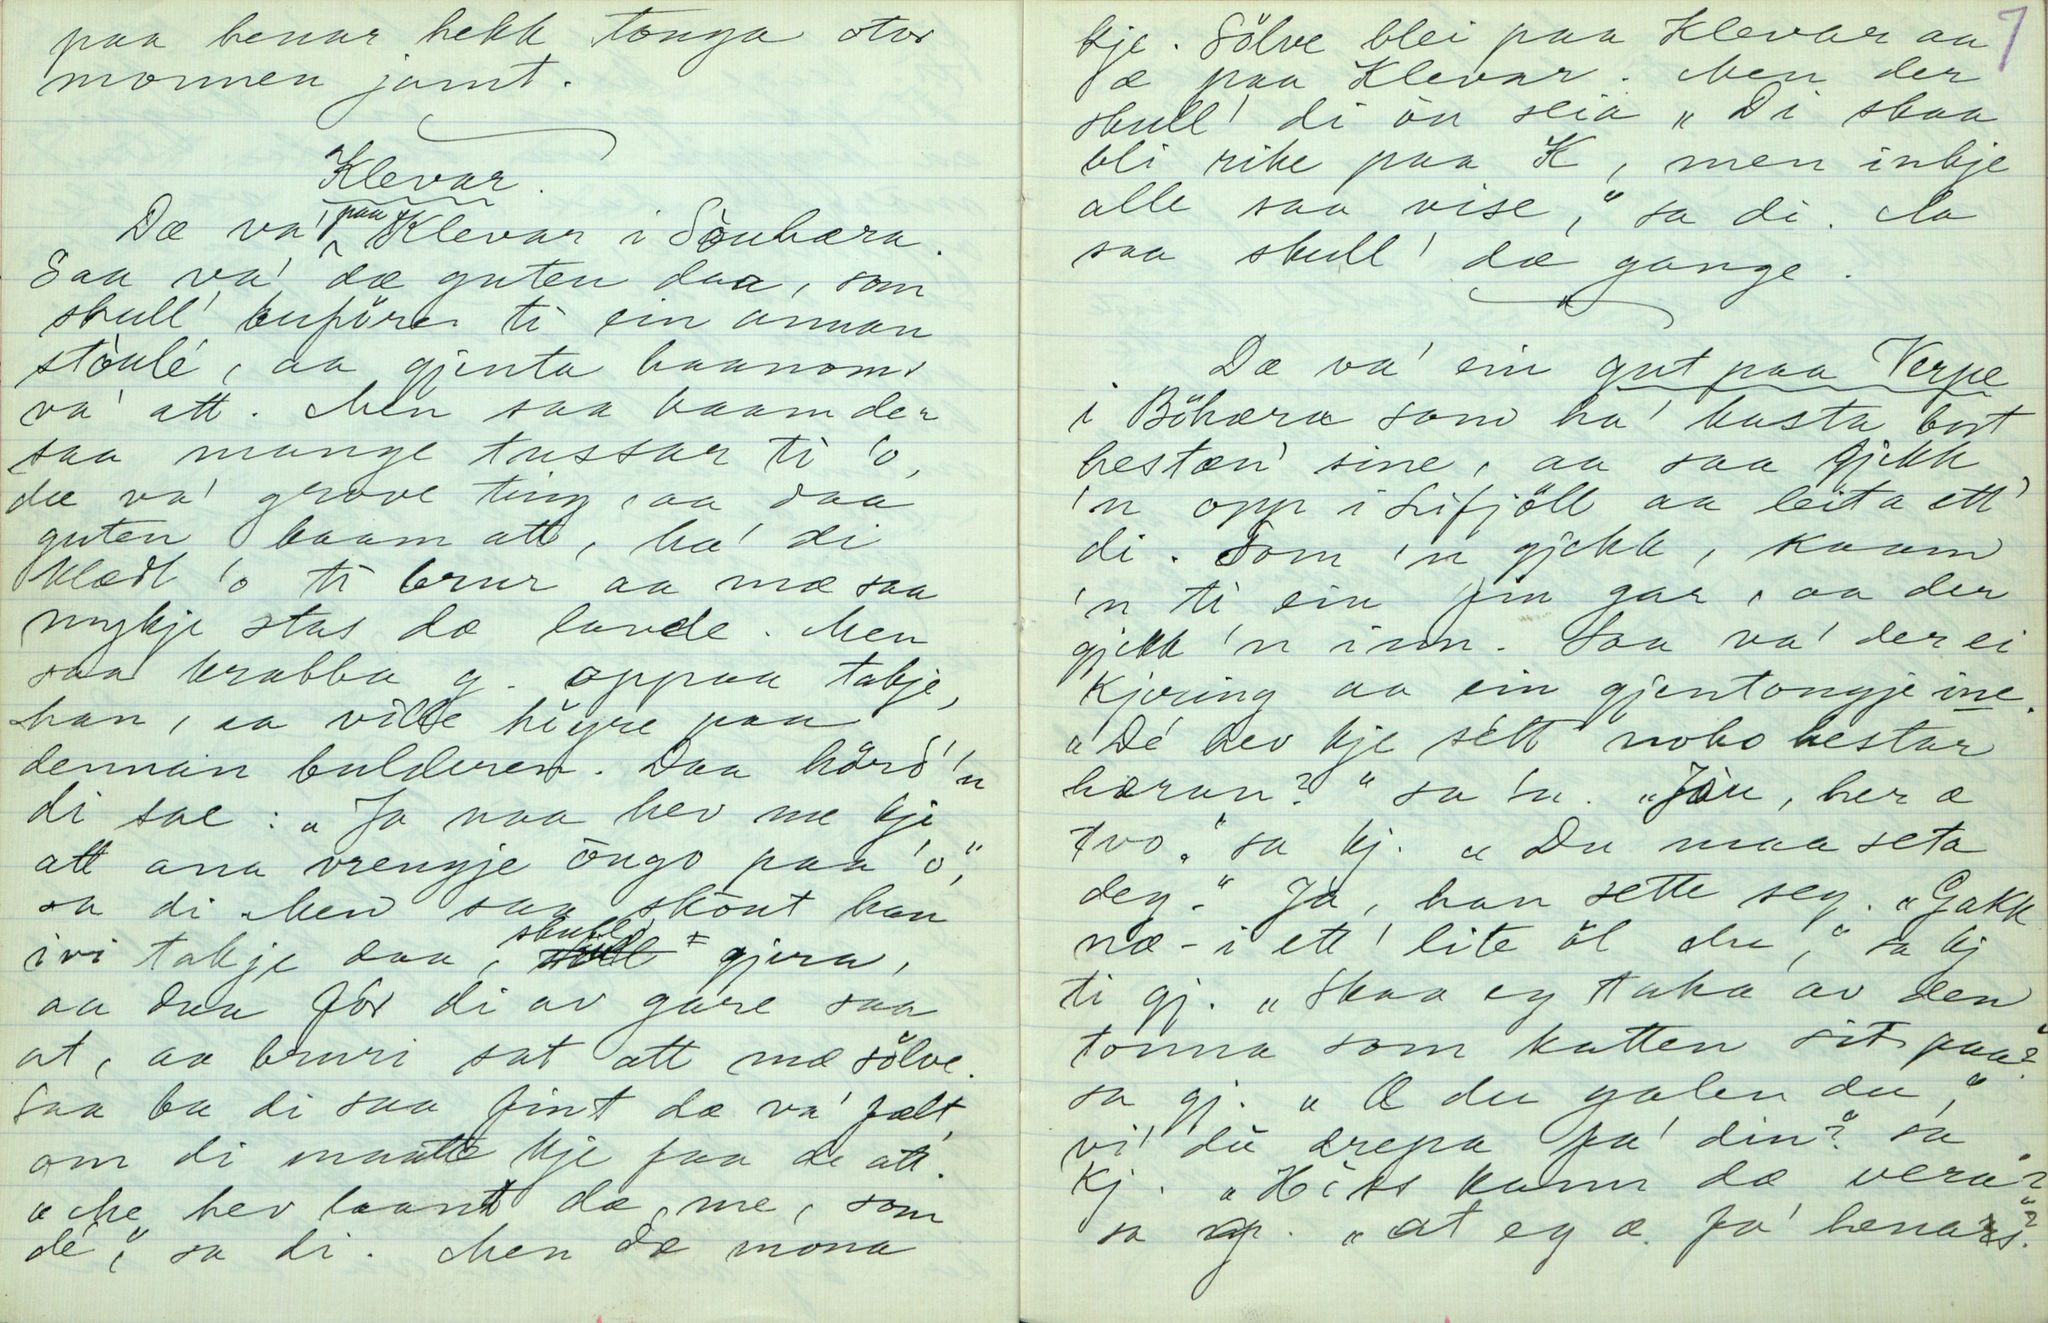 paa henar hekk tonga otor
monnen jamt.
Klevar.
Dæ va' paa Klevar i Sauhæra.
Saa va' dæ guten daa, som
skull' bufører ti ein annan
stòulé, aa gjenta haanoms
va' att. Men saa kaam der
saa mange tussar ti 'o,
dæ va' grove ting, aa daa
guten kaam att, ha' di
klædt 'o ti brur aa mæ saa
mykje stas dæ lavde. Men
saa krabba g. oppaa takje,
han, aa ville høyre paa
dennan bulderen. Daa hörd' 'n
di sae: „Ja naa hev me kje
att ana vrengje öugo paa 'o,"
sa di. Men saa skòut han
ivi takje daa, skulld' gjera,
aa daa för di av gare saa
at, aa bruri sat att mæ sölve.
Saa ba di saa fint dæ va' fælt,
om di maatte kje faa de att.
„Me hev laant dæ, me, som
dé," sa di. Men dæ mona
7
kje. Sölve blei paa Klevar aa
æ paa Klevar. Men der
skull' di òu seia „Di skaa
bli rike paa K, men inkje
alle saa vise," sa di. Aa
saa skull' dæ gange.
Dæ va' ein gut paa Verpe
i Böhæra som ha' kasta bort
hestæn' sine, aa saa gjekk
'n opp i Lifjöll aa leita ett'
di. Som 'n gjekk, kaam
'n ti ein fin gar, aa der
gjekk 'n inn. Saa va' der ei
Kjering aa ein gjentongje ine.
„Dé hev kje sétt noko hestar
hæran?" sa 'n. „Jòu, her æ
tvo." sa kj. „Du maa seta
deg." Ja, han sette seg. „Gakk
næ-i ett' lite öl du," sa kj
ti gj. „Skaa eg taka av den
tonna som katten sit paa?"
sa gj. „Æ du galen du,"
vi' du drepa fa' din?" sa
Kj. „Hòss kann dæ vera?"
sa gj. „at eg æ fa' henars?"